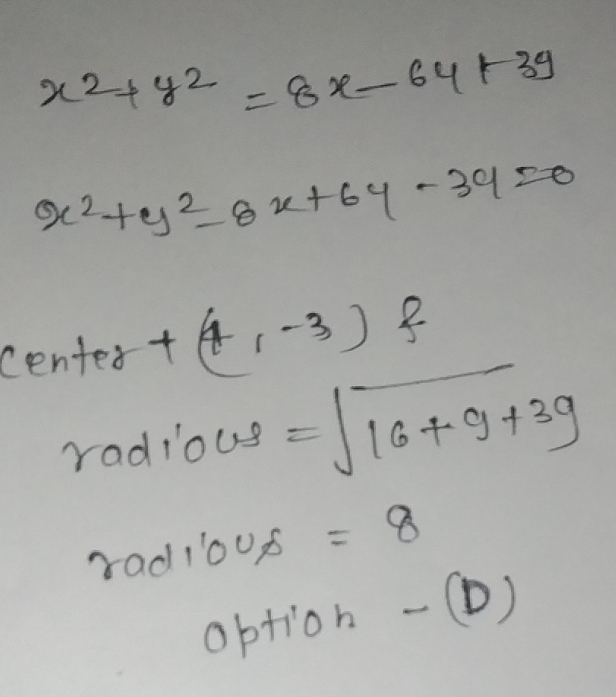 x2+y2 = 8x-6y+39
x2+y2-8x+6y-39=0
Center + (4, -3) &
radious = √16+9+39
radious = 8
Option - (D)